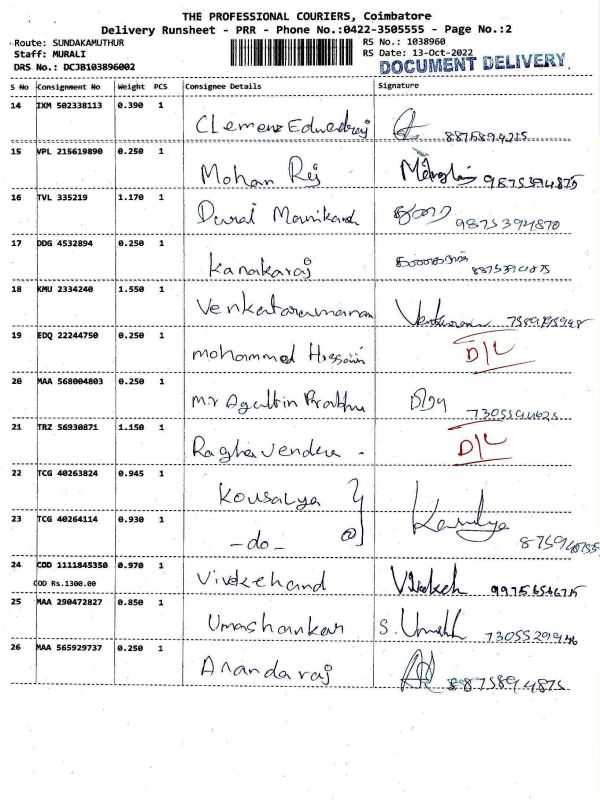 THE PROFESSIONAL COURIERS, Coimbatore
Delivery Runsheet - PRR - Phone No.:0422-3505555 - Page No.:2
Route: SUNDAKAMUTHUR RS No.: 1038960
Staff: MURALI RS Date: 13-Oct-2022
DRS No.: DCJB103896002 DOCUMENT DELIVERY
S No Consignment No Weight PCS Consignee Details Signature
14 IXM 502338113 0.390 1
15 VPL 215619890 0.250 1
Mohan Raj 9875394875
16 TVL 335219 1.170 1
Durai Manikand 9875394870
17 DDG 4532894 0.250 1
Kanakaraj
18 KMU 2334240 1.550 1
Venkataramanan
19 EDQ 22244750 0.250 1
mohammed Hussain D/L
20 MAA 568004803 0.250 1
Mr Agustin Prabhu
21 TRZ 56930871 1.150 1
Raghavendra - D/L
22 TCG 40263824 0.945 1
Kousalya
23 TCG 40264114 0.930 1
-do-
24 COD 1111845350 0.970 1
COD Rs.1300.00 Vivekehand Vivekeh
25 MAA 290472827 0.850 1
Umashankar
26 MAA 565929737 0.250 1
Anandaraj 8875894875